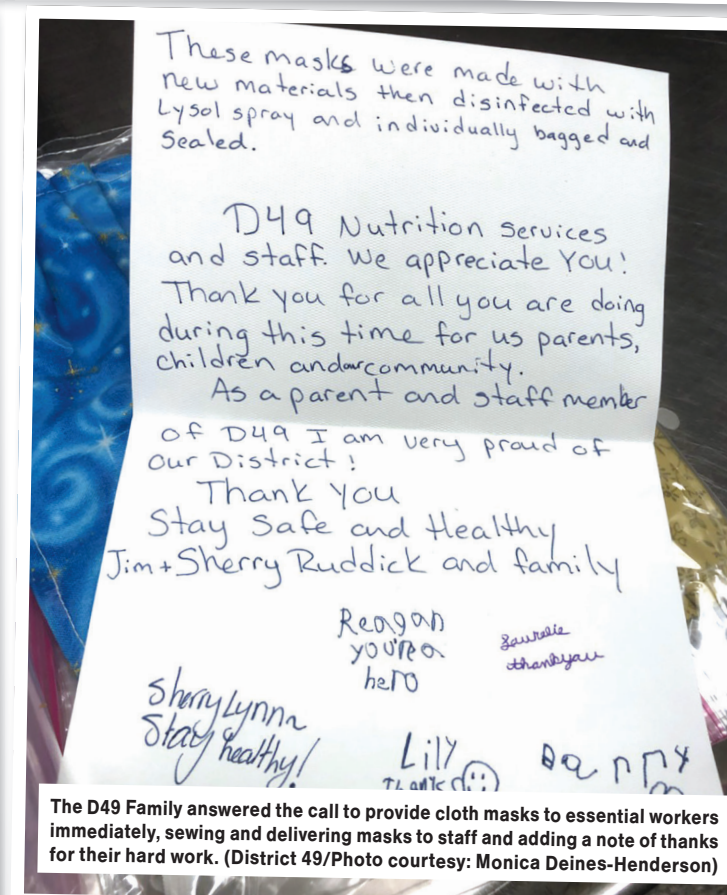 These masks were made with
new materials then disinfected with
Lysol spray and individually bagged and
Sealed.
D49 Nutrition Services
and staff. We appreciate You!
Thank you for all you are doing
during this time for us parents,
children and our community.
As a parent and staff member
of D49 I am very proud of
Our District!
Thank You
Stay Safe and Healthy
Jim + Sherry Ruddick and family
Reagan
you're a
hero
Lauralie
thankyou
Sherrylynn
Stay healthy!
Lily
Thanks
Danny
The D49 Family answered the call to provide cloth masks to essential workers
immediately, sewing and delivering masks to staff and adding a note of thanks
for their hard work. (District 49/Photo courtesy: Monica Deines-Henderson)